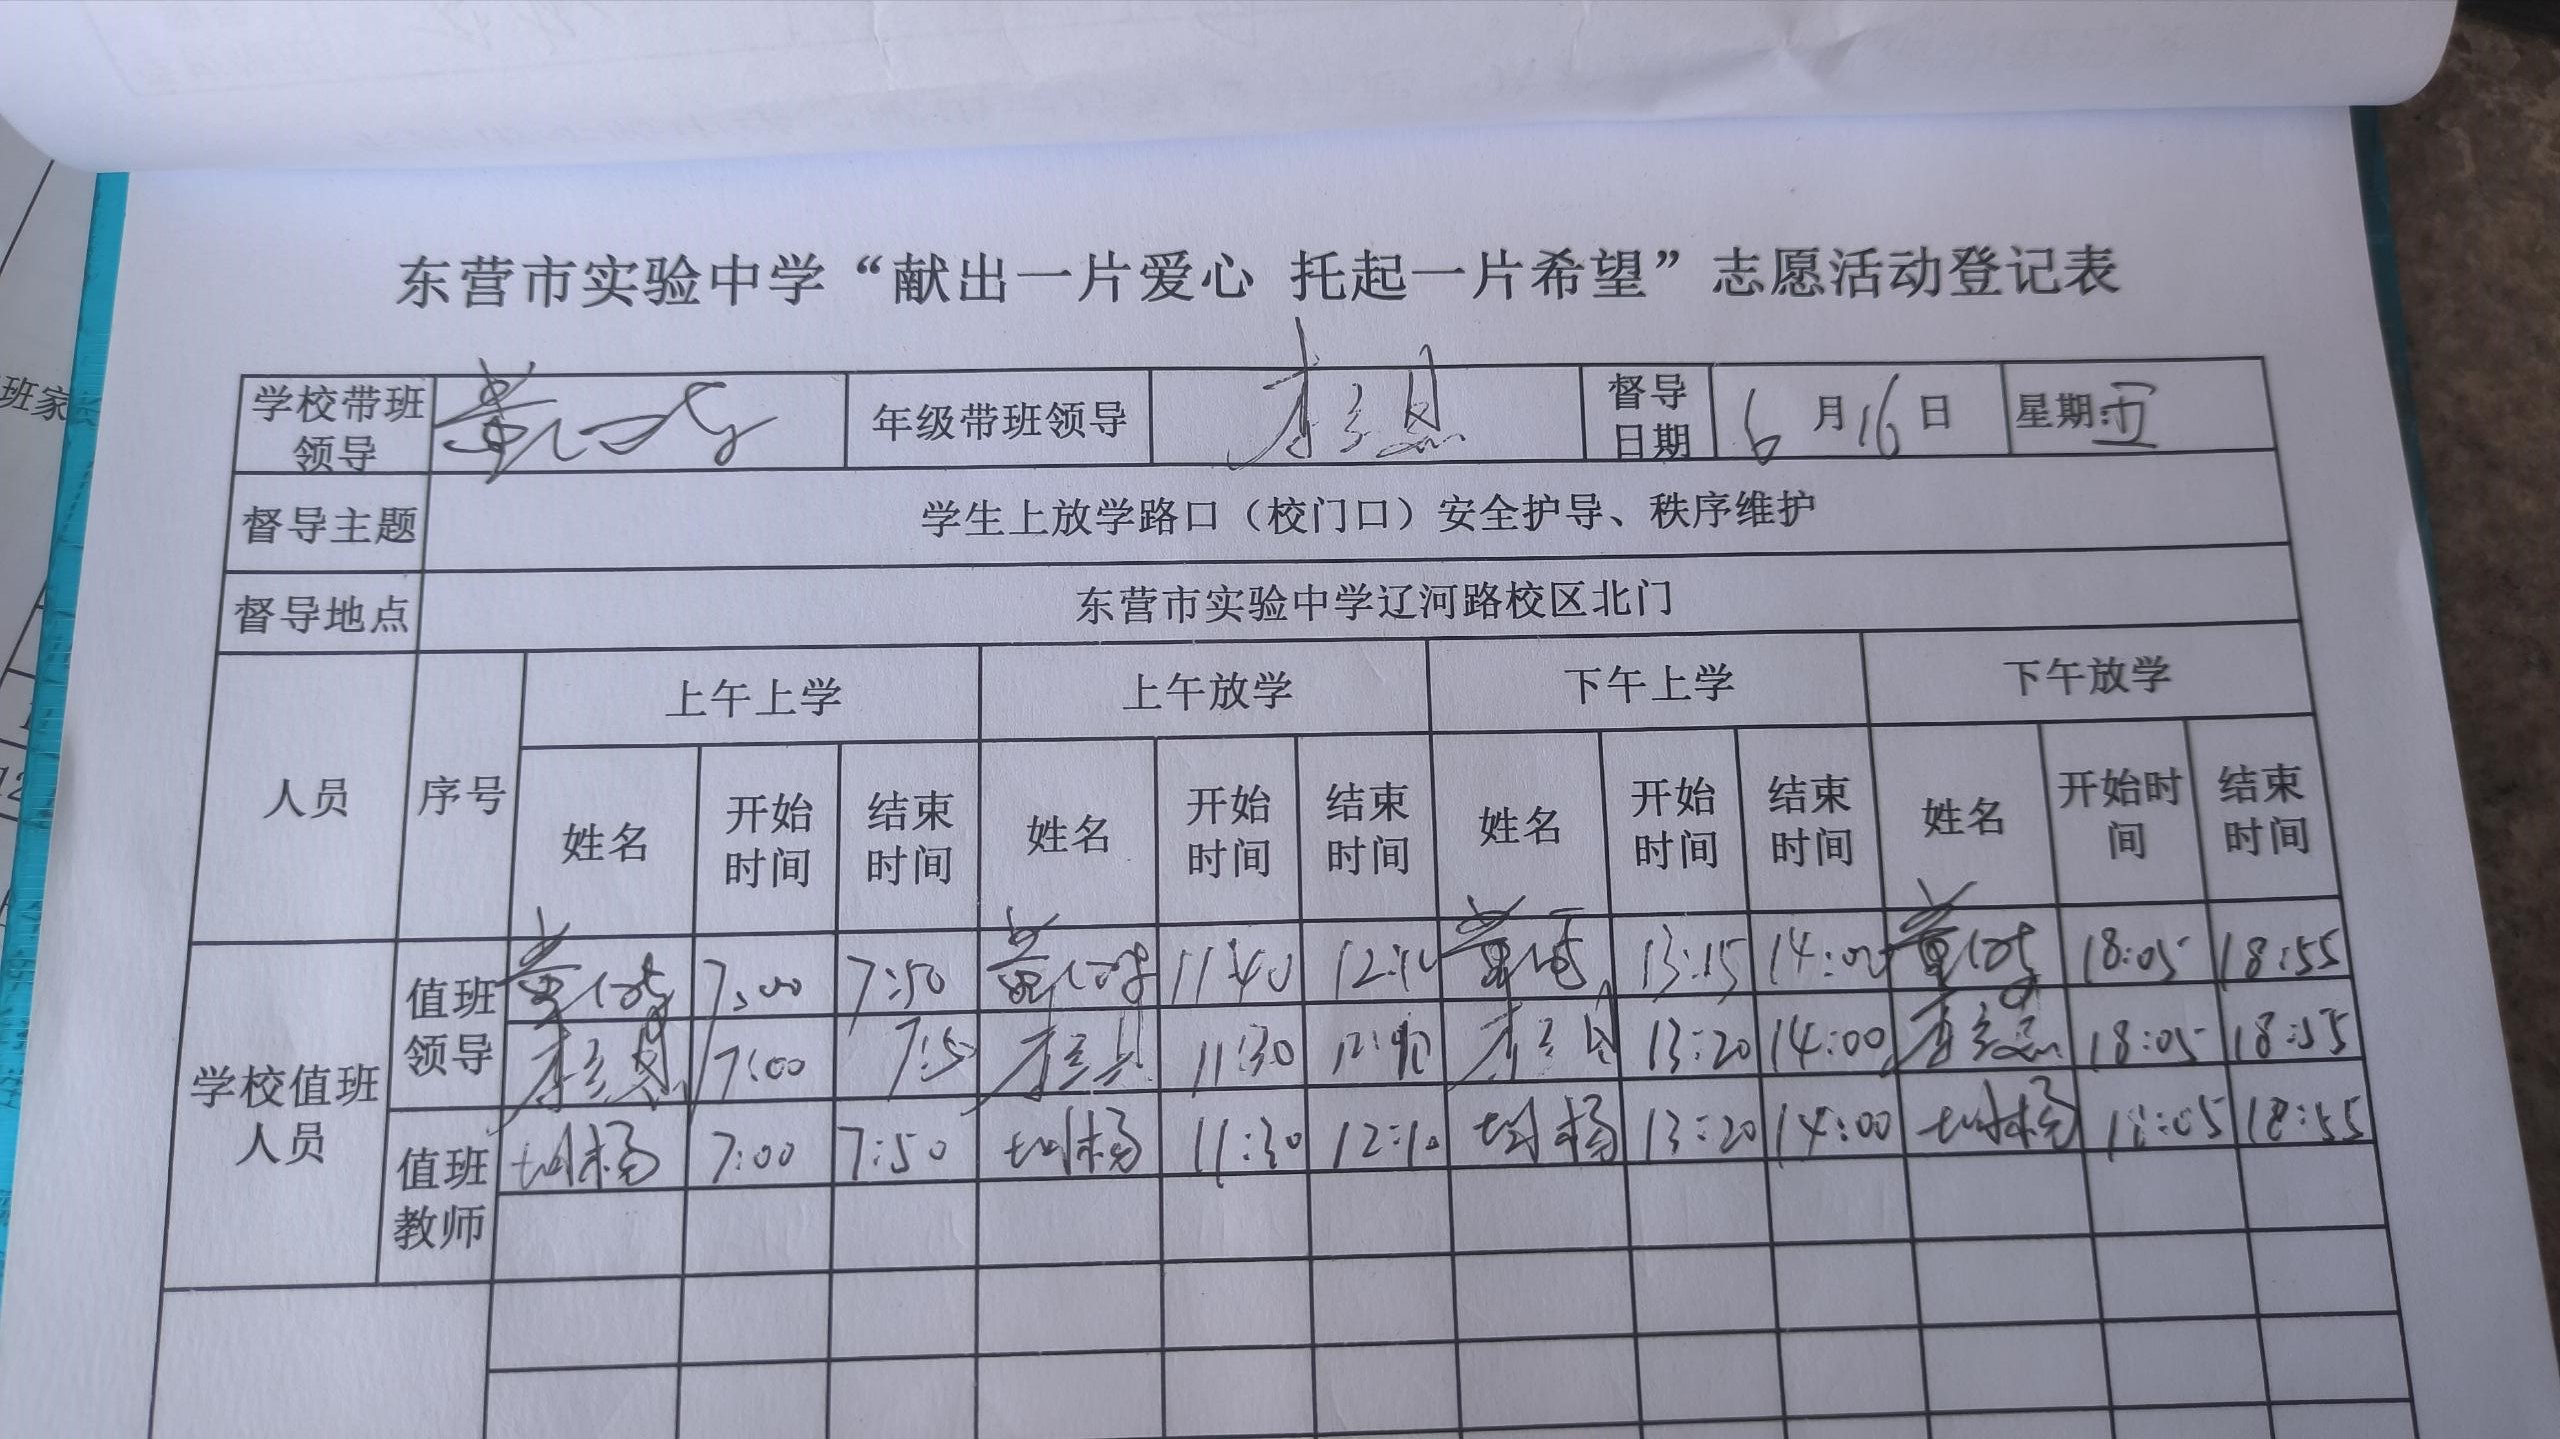 东营市实验中学“献出一片爱心 托起一片希望”志愿活动登记表
学校带班领导 年级带班领导 督导日期 6月16日 星期:五
督导主题 学生上放学路口（校门口）安全护导、秩序维护
督导地点 东营市实验中学辽河路校区北门
人员 序号 上午上学 上午放学 下午上学 下午放学
姓名 开始时间 结束时间 姓名 开始时间 结束时间 姓名 开始时间 结束时间 姓名 开始时间 结束时间
学校值班人员
值班领导 7:00 7:50 11:40 13:15 14:00 18:05 18:55
7:00 7:50 11:30 13:20 14:00 18:05 18:55
值班教师 7:00 7:50 11:30 12:10 13:20 14:00 18:05 18:55
班家